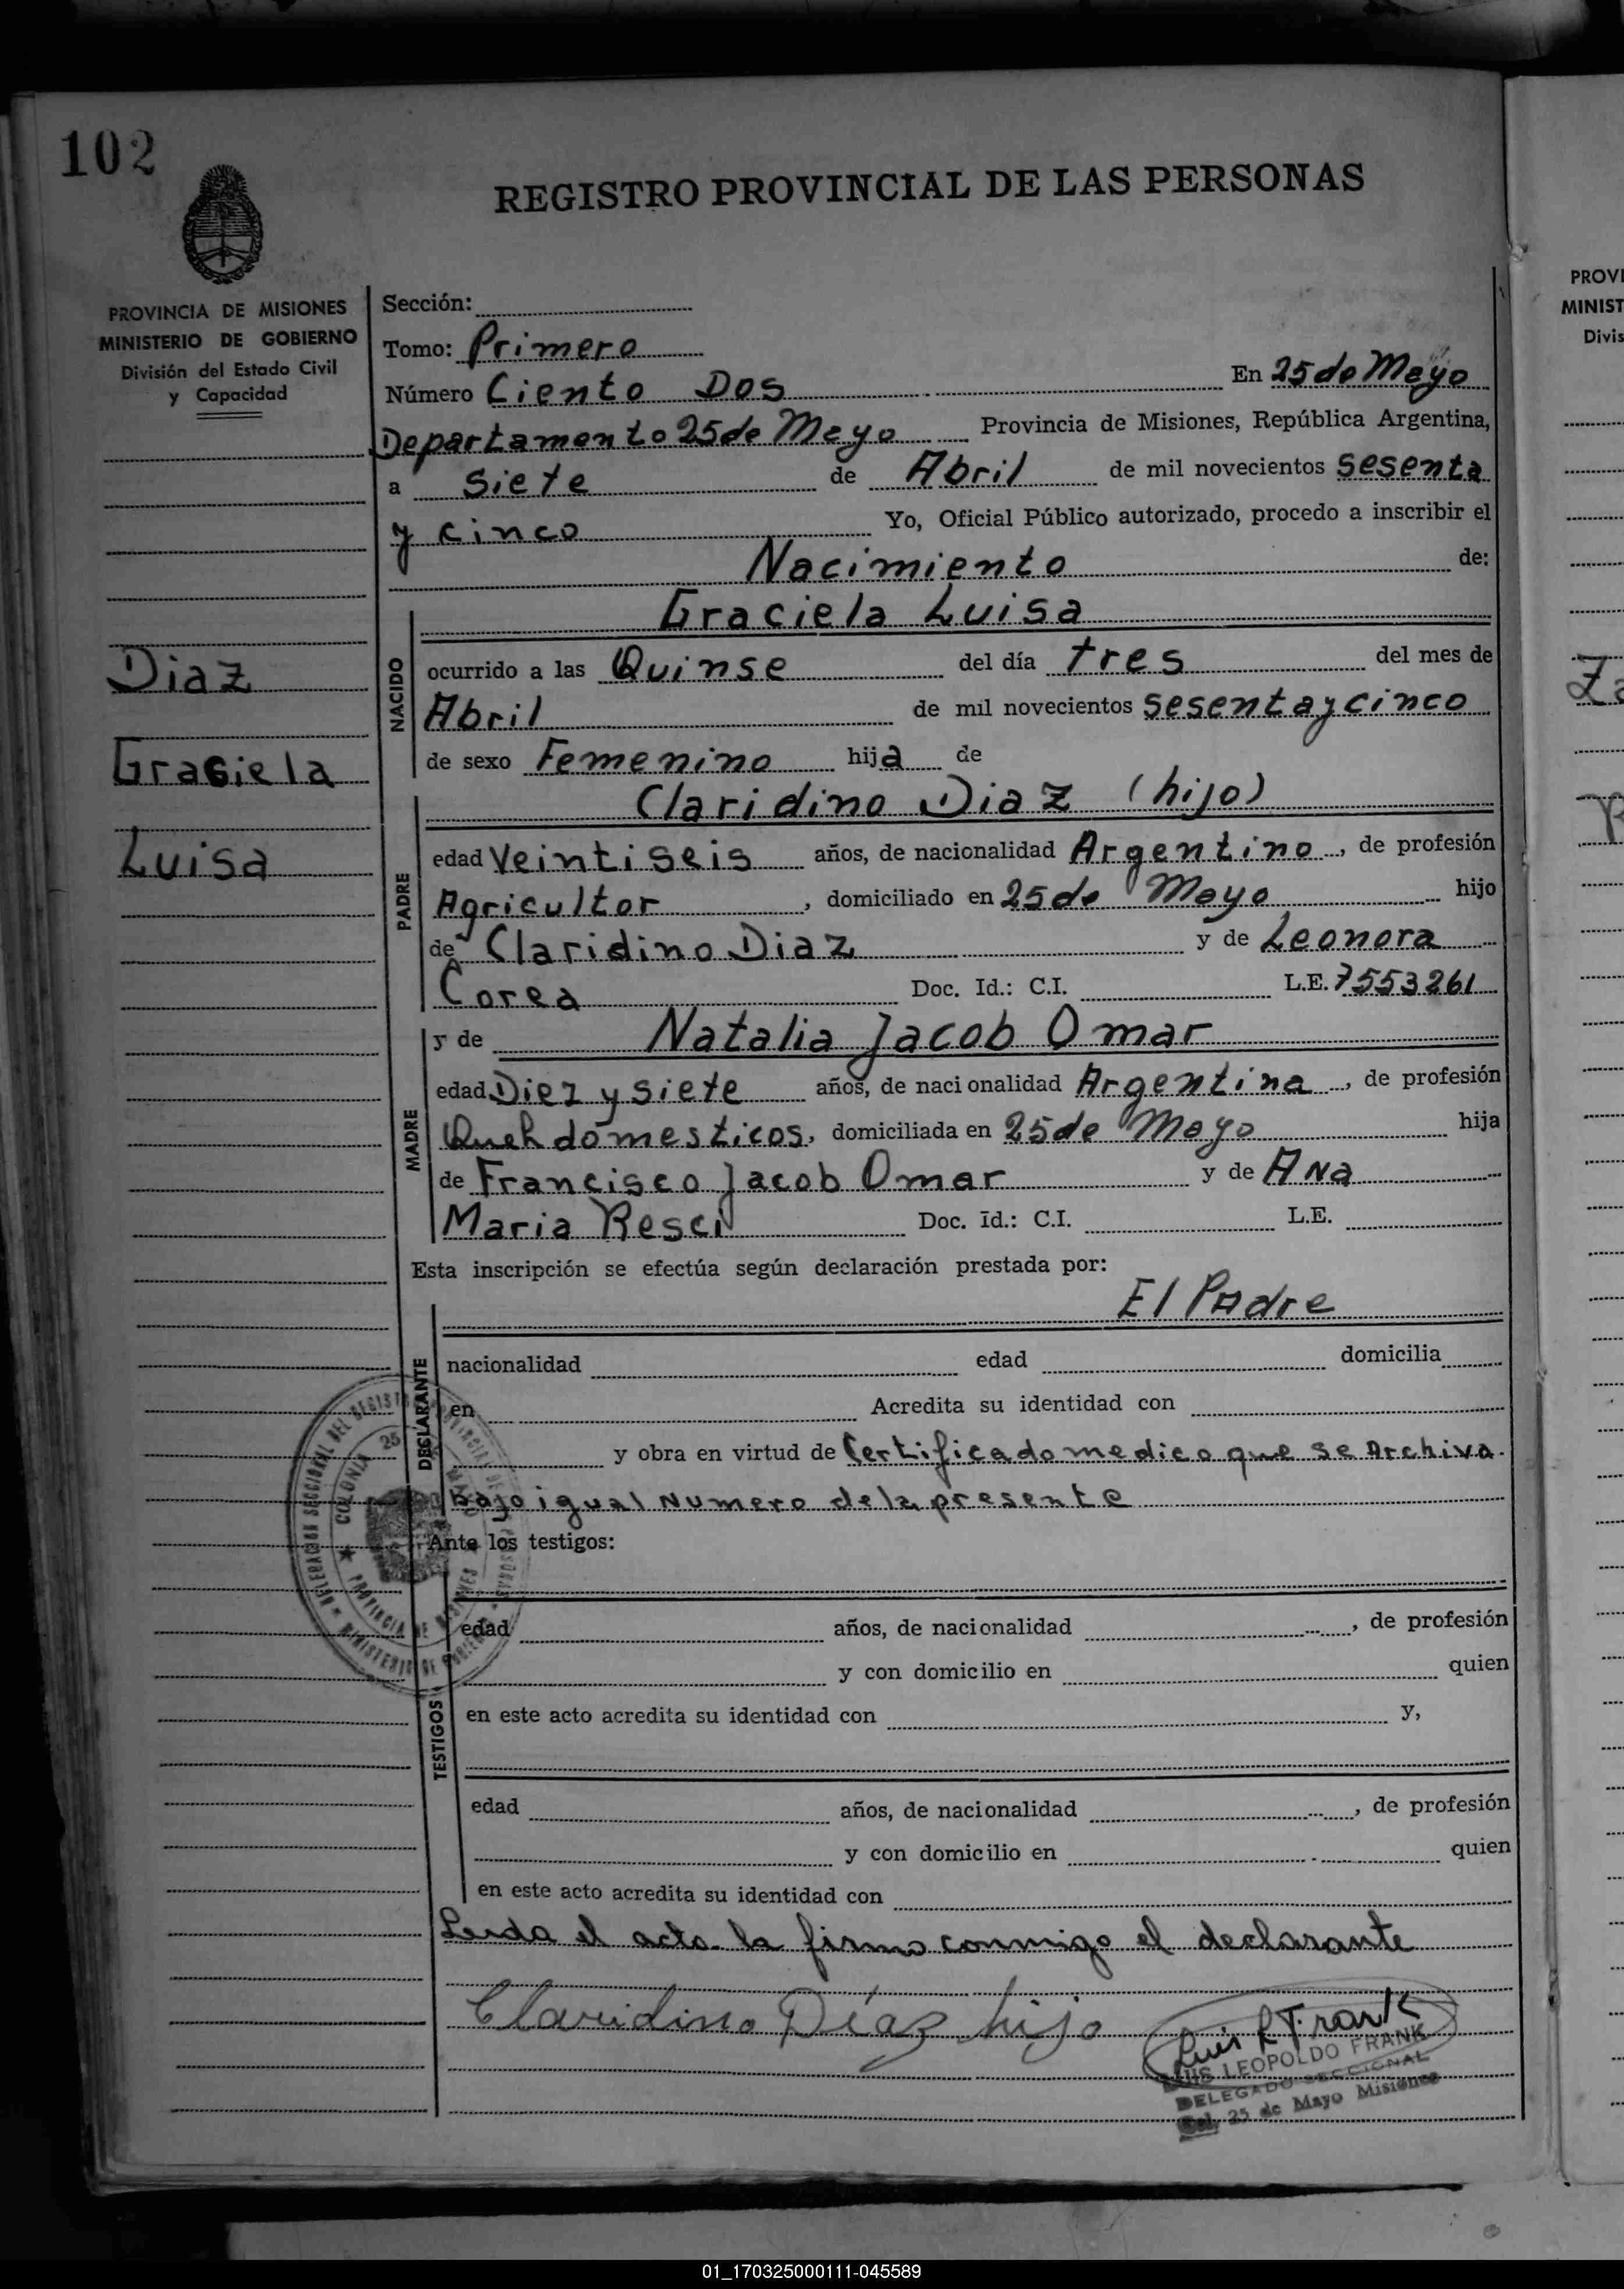 102
REGISTRO PROVINCIAL DE LAS PERSONAS
PROVINCIA DE MISIONES
MINISTERIO DE GOBIERNO
División del Estado Civil
y Capacidad
Diaz
Graciela
Luisa
Sección:
Tomo: Primero
Número Ciento Dos En 25 de Mayo
Departamento 25 de Mayo Provincia de Misiones, República Argentina,
a siete de Abril de mil novecientos sesenta
y cinco Yo, Oficial Público autorizado, procedo a inscribir el
Nacimiento de:
NACIDO
Graciela Luisa
ocurrido a las Quinse del día tres del mes de
Abril de mil novecientos sesenta y cinco
de sexo Femenino hija de
PADRE
Claridino Diaz (hijo)
edad Veintiseis años, de nacionalidad Argentino, de profesión
Agricultor, domiciliado en 25 de Mayo hijo
de Claridino Diaz y de Leonora
Corea Doc. Id.: C.I. L.E. 7553261
MADRE
y de Natalia Jacob Omar
edad Diez y siete años, de nacionalidad Argentina, de profesión
Queh domesticos, domiciliada en 25 de Mayo hija
de Francisco Jacob Omar y de Ana
Maria Doc. Id.: C.I. L.E.
Esta inscripción se efectúa según declaración prestada por:
El Padre
DECLARANTE
nacionalidad edad domicilia
en Acredita su identidad con
y obra en virtud de Certificado medico que se Archiva
bajo igual Numero de la presente
Ante los testigos:
TESTIGOS
edad años, de nacionalidad , de profesión
y con domicilio en quien
en este acto acredita su identidad con y,
edad años, de nacionalidad , de profesión
y con domicilio en quien
en este acto acredita su identidad con
Leida el acta la firma conmigo el declarante
Claridino Díaz hijo
Luis L Frank
LUIS LEOPOLDO FRANK
DELEGADO SECCIONAL
Col. 25 de Mayo Misiones
COLONIA 25
PROVINCIA DE MISIONES
MINISTERIO DE GOBIERNO
PROVI
MINIST
Divis
01_170325000111-045589